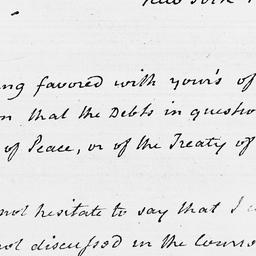 New York
ng favored with your's of
n that the Debts in questio
of Peace, or of the Treaty of
not hesitate to say that I
not discussed in the Course